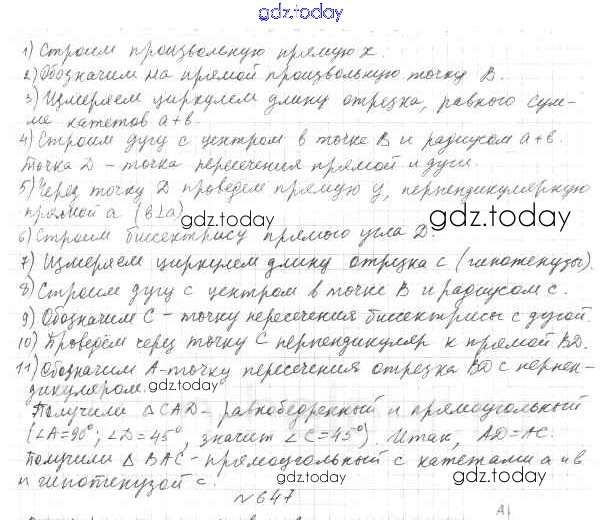 gdz.today
1) Строим произвольную прямую x.
2) Обозначим на прямой произвольную точку B.
3) Измеряем циркулем длину отрезка, равного сум-
ме катетов a+в.
4) Строим дугу с центром в точке B и радиусом a+в.
Точка D - точка пересечения прямой и дуги.
5) Через точку D проведем прямую y, перпендикулярную
прямой a (в⊥a)
gdz.today gdz.today
6) Строим биссектрису прямого угла D.
7) Измеряем циркулем длину отрезка c (гипотенузы).
8) Строим дугу с центром в точке B и радиусом c.
9) Обозначим C - точку пересечения биссектрисы с дугой.
10) Проведём через точку C перпендикуляр к прямой BD.
11) Обозначим A-точку пересечения отрезка BD с перпен-
дикуляром.
gdz.today
Получили △CAD - равнобедренный и прямоугольный
(∠A=90°; ∠D=45°, значит ∠C=45°). Итак, AD=AC.
Получили △BAC - прямоугольный с катетами a и в
и гипотенузой c.
gdz.today gdz.today
№647